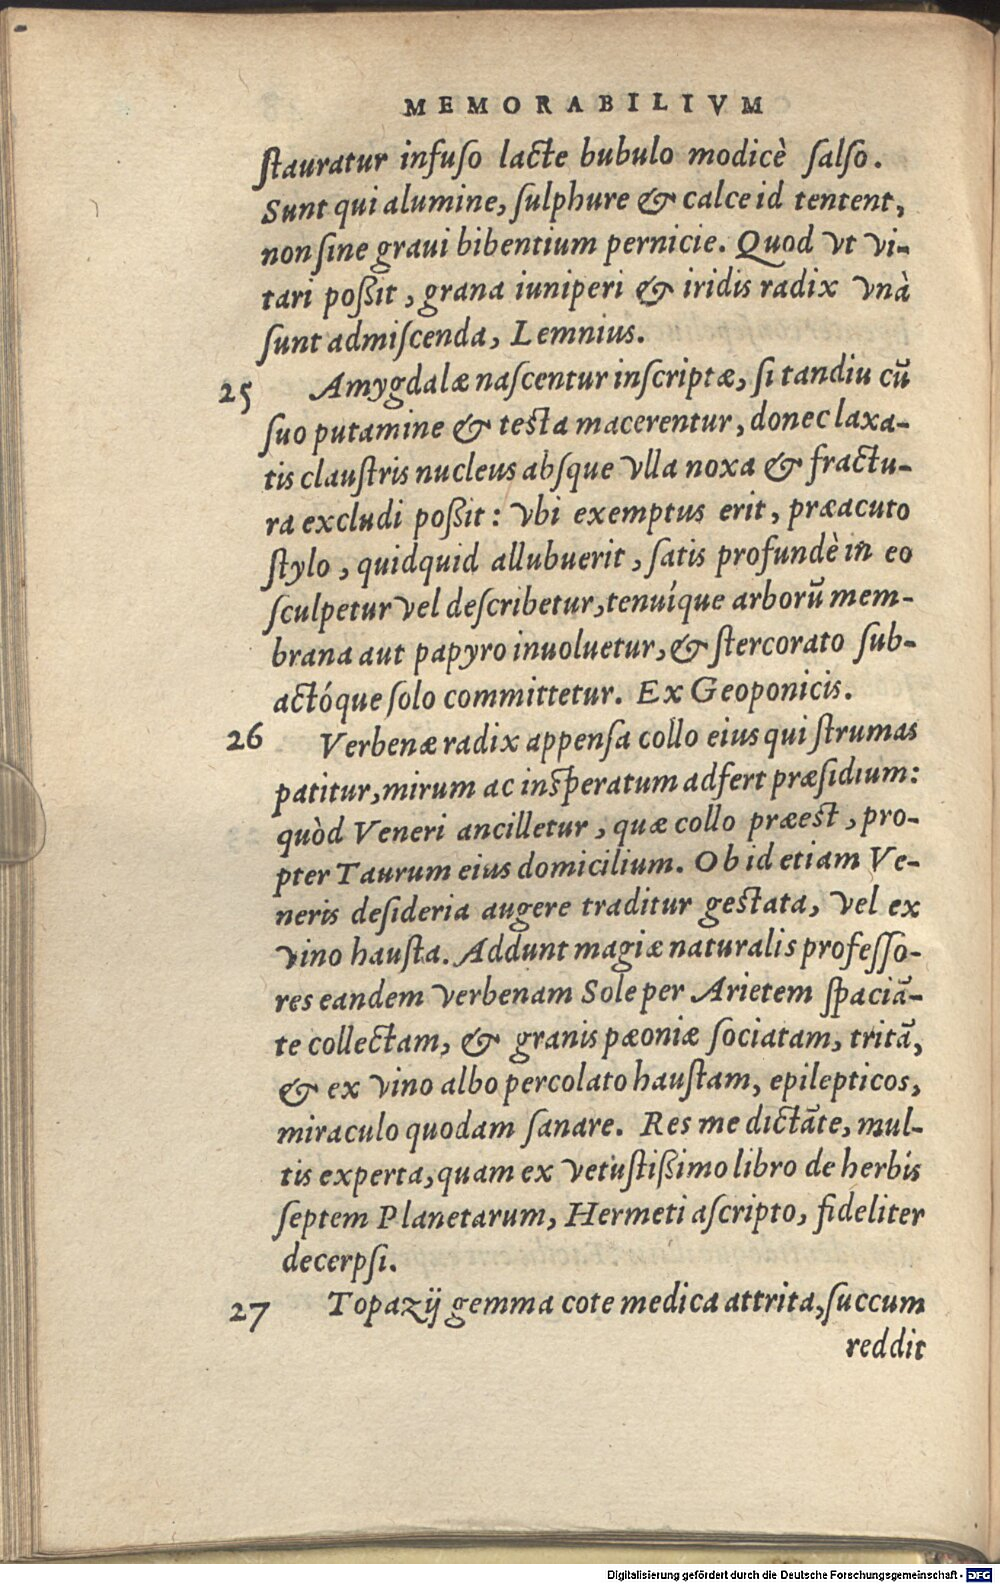 MEMORABILIVM
ſtauratur infuſo lacte bubulo modicè ſalſo.
Sunt qui alumine, ſulphure & calce id tentent,
non ſine graui bibentium pernicie. Quod vt vi-
tari poßit, grana iuniperi & iridis radix vnà
ſunt admiſcenda, Lemnius.
25 Amygdalæ naſcentur inſcriptæ, ſi tandiu cū
ſuo putamine & teſta macerentur, donec laxa-
tis clauſtris nucleus abſque vlla noxa & fractu-
ra excludi poßit: vbi exemptus erit, præacuto
ſtylo, quidquid allubuerit, ſatis profundè in eo
ſculpetur vel deſcribetur, tenuíque arborū mem-
brana aut papyro inuoluetur, & ſtercorato ſub-
actóque ſolo committetur. Ex Geoponicis.
26 Verbenæ radix appenſa collo eius qui ſtrumas
patitur, mirum ac inſperatum adfert præſidium:
quòd Veneri ancilletur, quæ collo præeſt, pro-
pter Taurum eius domicilium. Ob id etiam Ve-
neris deſideria augere traditur geſtata, vel ex
vino hauſta. Addunt magiæ naturalis profeſſo-
res eandem verbenam Sole per Arietem ſpaciā-
te collectam, & granis pæoniæ ſociatam, tritā,
& ex vino albo percolato hauſtam, epilepticos,
miraculo quodam ſanare. Res me dictāte, mul-
tis experta, quam ex vetuſtißimo libro de herbis
ſeptem Planetarum, Hermeti aſcripto, fideliter
decerpſi.
27 Topazij gemma cote medica attrita, ſuccum
reddit
Digitalisierung gefördert durch die Deutsche Forschungsgemeinschaft - DFG